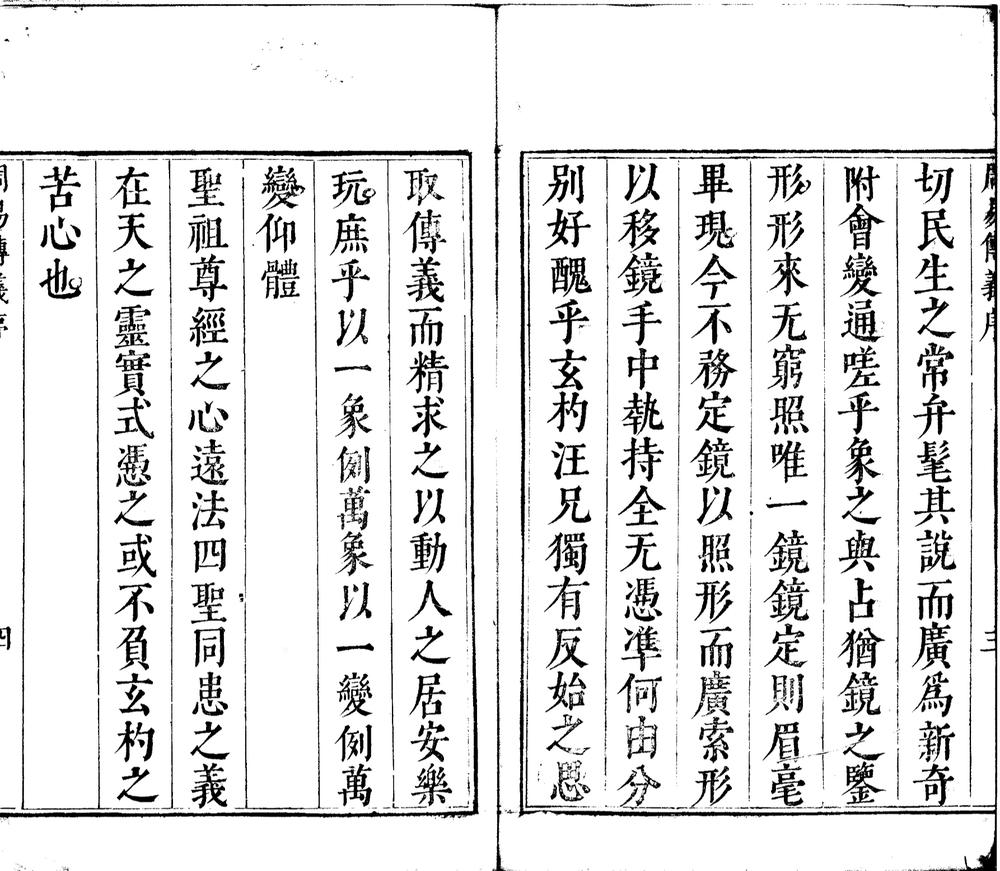 周易傳義序
三
切民生之常弁髦其說而廣爲新奇
附會變通嗟乎象之與占猶鏡之鑒
形形來无窮照唯一鏡鏡定則眉毫
畢現今不務定鏡以照形而廣索形
以移鏡手中執持全无憑凖何由分
别好醜乎玄杓汪兄獨有反始之思
取傳義而精求之以動人之居安樂
玩庶乎以一象例萬象以一變例萬
變仰體
聖祖尊經之心遠法四聖同患之義
在天之靈實式憑之或不負玄杓之
苦心也
周易傳義序
四